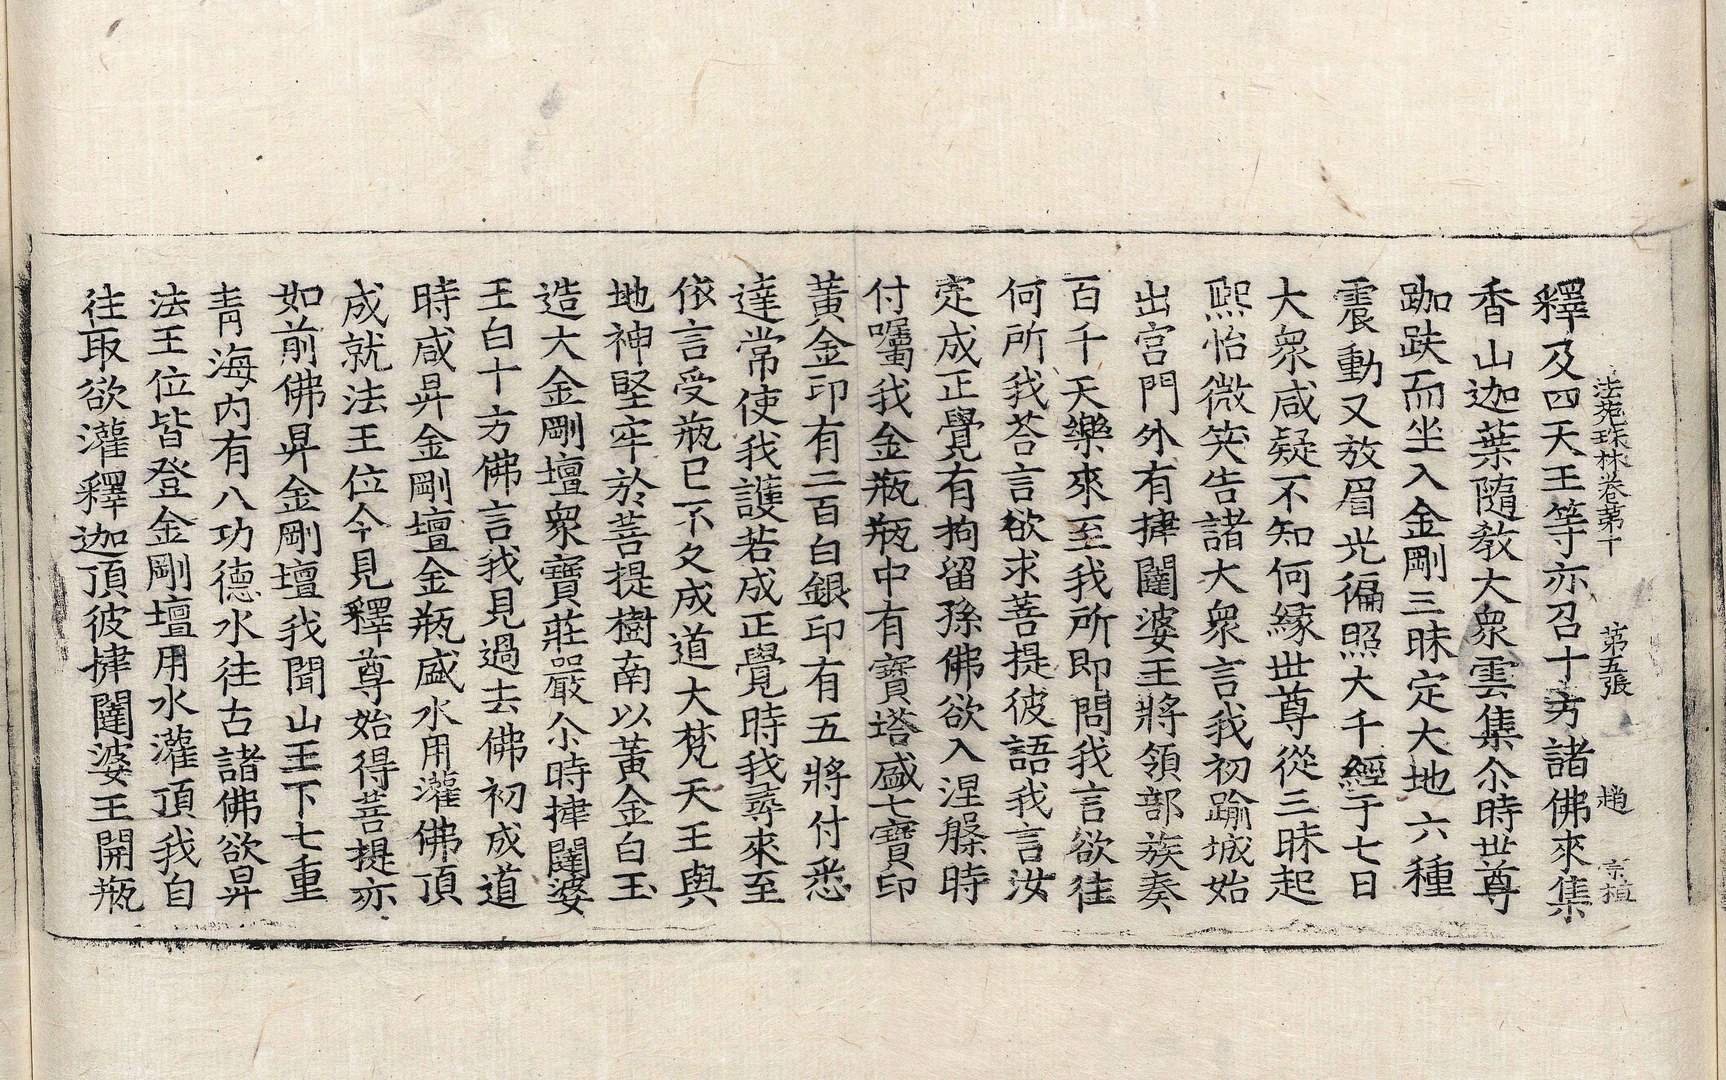 法苑珠林卷第十　第五張　趙　宗植
釋及四天王等亦召十方諸佛來集
香山迦葉隨教大衆雲集尒時世尊
跏趺而坐入金剛三昧定大地六種
震動又放眉光徧照大千經于七日
大衆咸疑不知何緣世尊從三昧起
熈怡微笑告諸大衆言我初踰城始
出宮門外有揵闥婆王將領部族奏
百千天樂來至我所即問我言欲徃
何所我荅言欲求菩提彼語我言汝
定成正覺有拘留孫佛欲入涅槃時
付囑我金瓶瓶中有寶塔盛七寶印
黃金印有二百白銀印有五將付悉
達常使我護若成正覺時我尋來至
依言受瓶已不久成道大梵天王與
地神堅牢於菩提樹南以黃金白玉
造大金剛壇衆寶莊嚴尒時揵闥婆
王白十方佛言我見過去佛初成道
時咸昇金剛壇金瓶盛水用灌佛頂
成就法王位今見釋尊始得菩提亦
如前佛昇金剛壇我聞山王下七重
青海內有八功德水徃古諸佛欲昇
法王位皆登金剛壇用水灌頂我自
徃取欲灌釋迦頂彼揵闥婆王開瓶